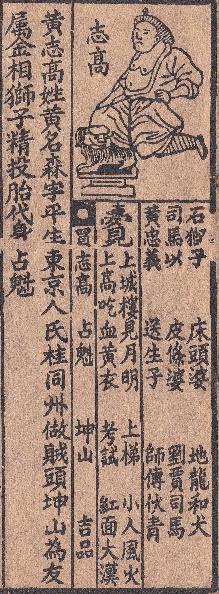 志高
石獅子 床頭婆 地龍和犬
司馬以 皮條婆 劉賈司馬
黃忠義 送生子 師傅伏青
上城樓見月明 上梯 小人風火
上高吃血黃衣 考試 紅面大漢
冒志高 占魁 坤山 吉品
黃志高姓黃名森字平生東京人氏桂同州做賊頭坤山為友
屬金相獅子精投胎代身占魁